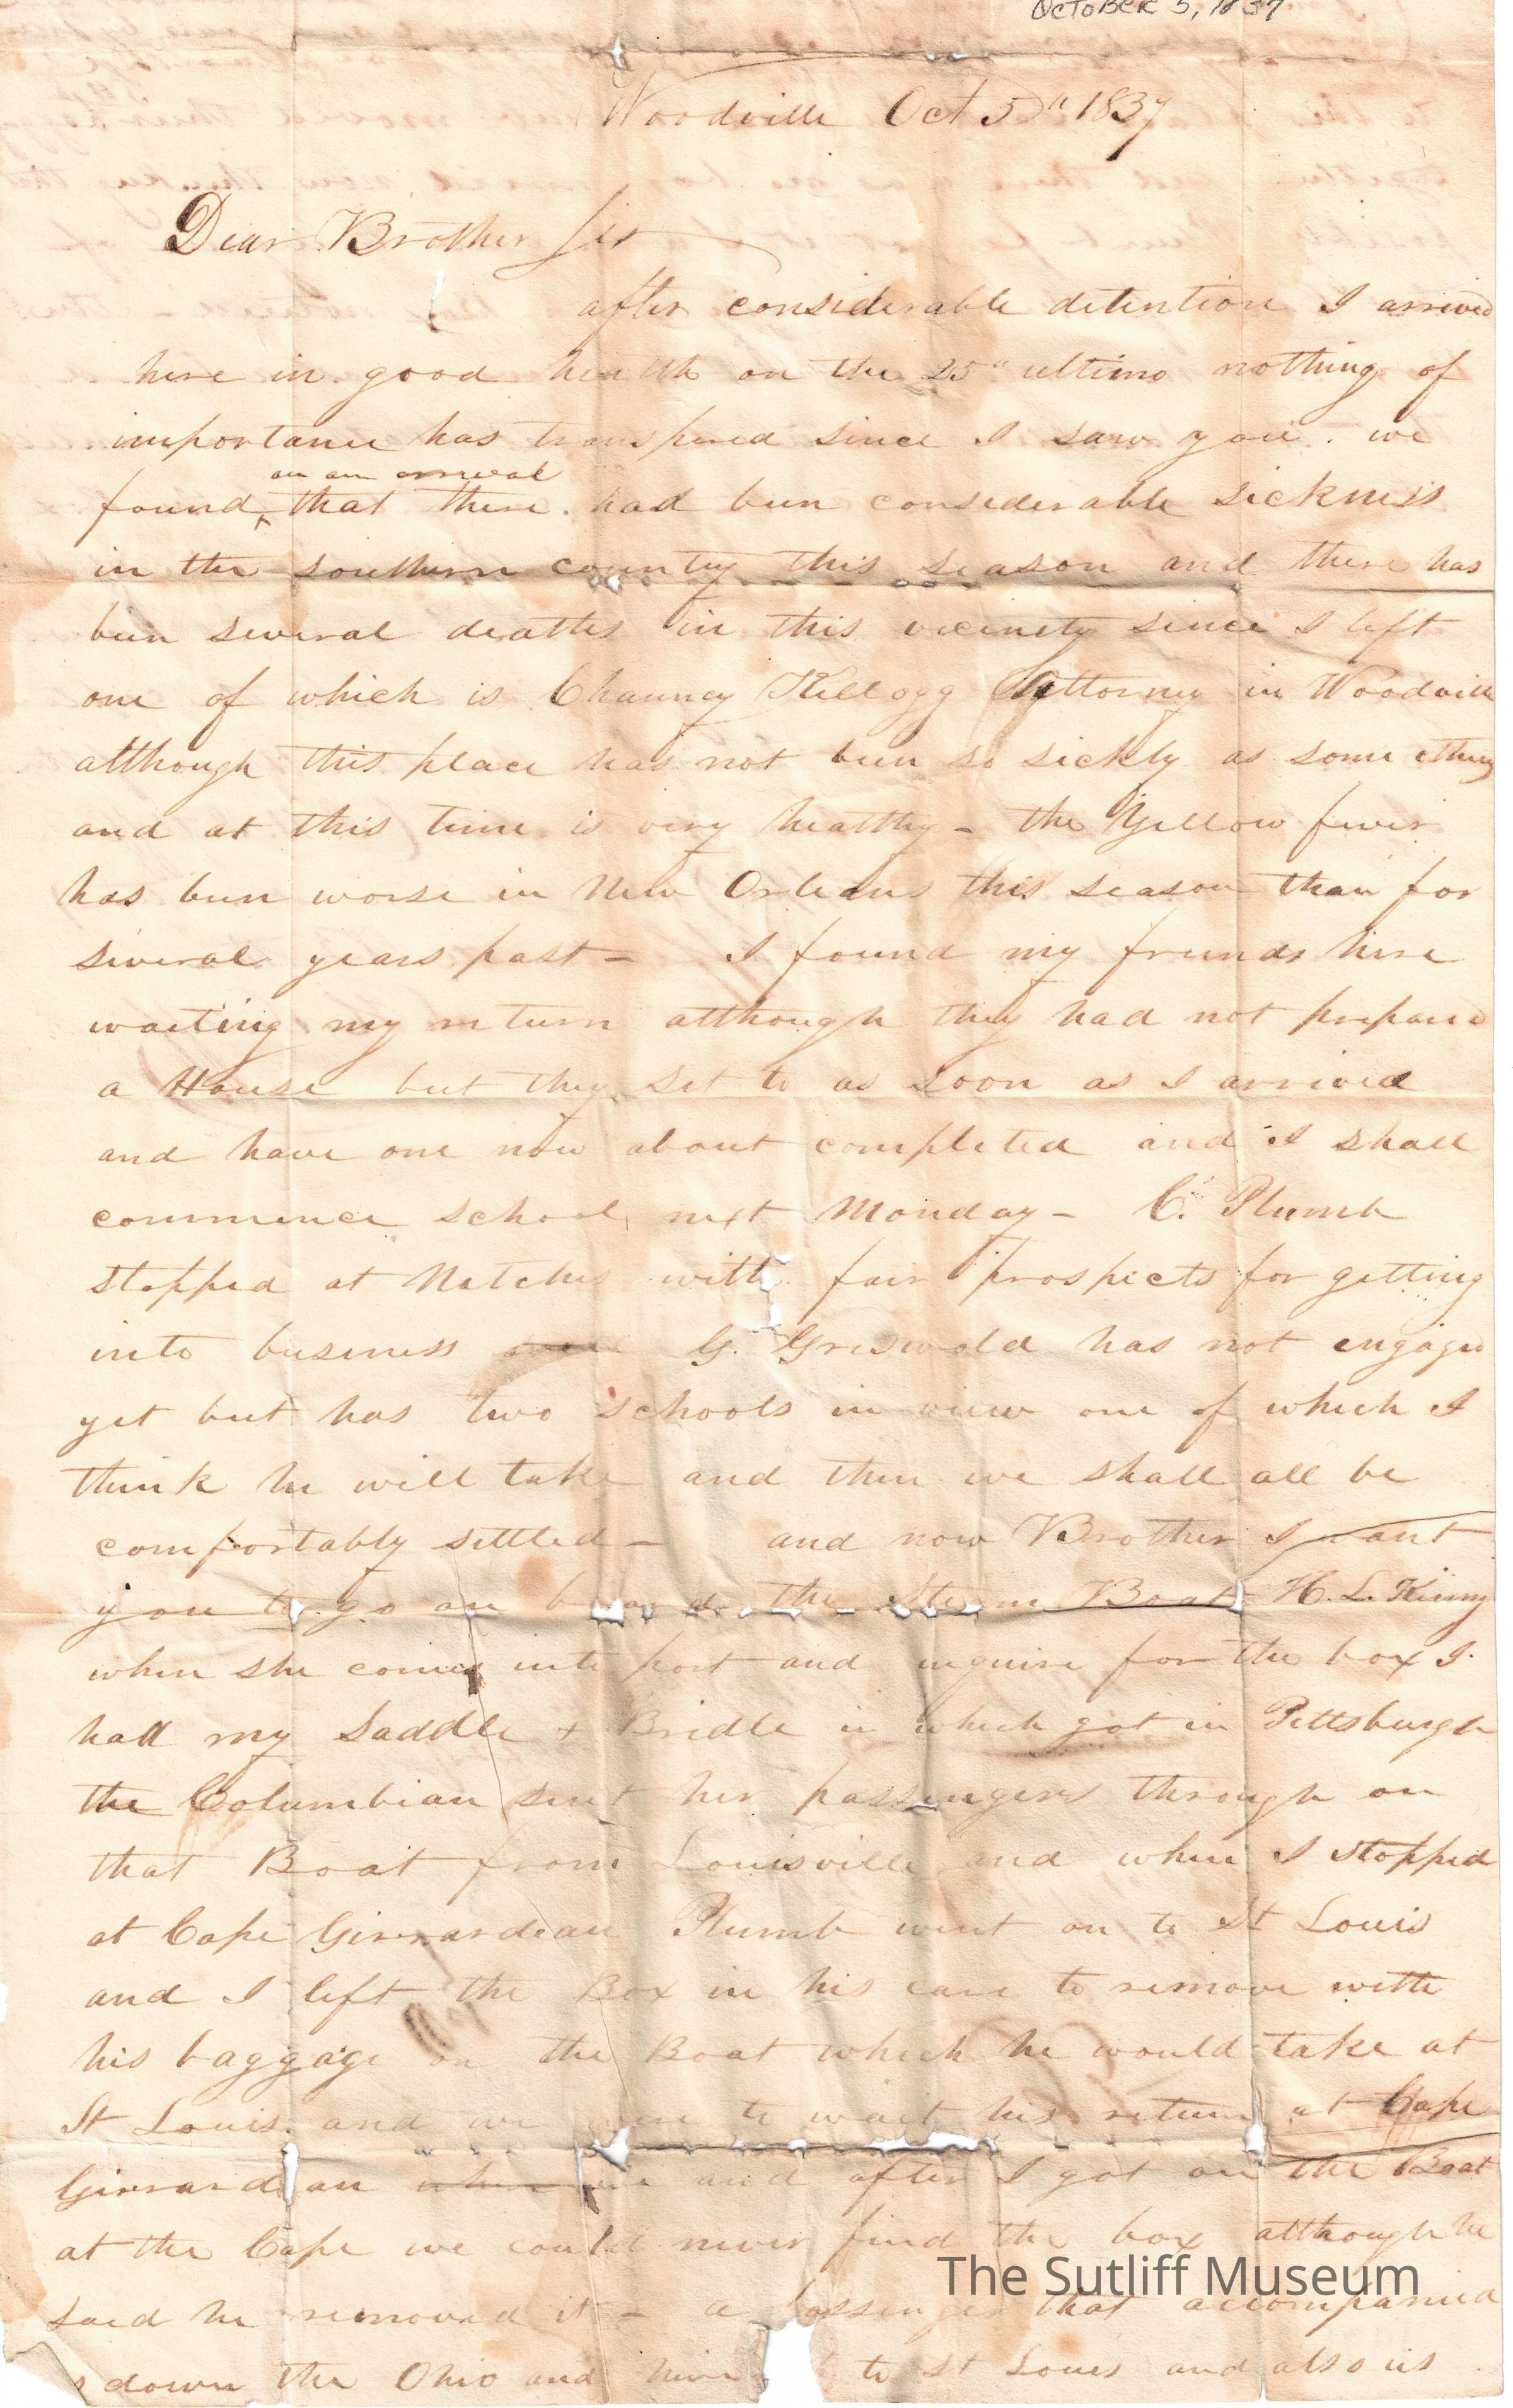 OCTOBER 5, 1837
Woodville Oct 5th 1837
Dear Brother Sir
after considerable detention I arrived
here in good health on the 25" ultimo nothing of
importance has transpired since I saw you. we
on arrival
found that there had been considerable sickness
in the southern country this season and there has
been several deaths in this vicinety since I left
one of which is Chauncy Kellogg Attorney in Woodville
although this place has not been so sickly as some others
and at this time is very healthy - the Yellow fever
has been worse in New Orleans this season than for
several years past - I found my friends here
waiting my return although they had not prepared
a House but they set to as soon as I arrived
and have one now about completed and I shall
commence school next Monday - C. Plumb
stopped at Natches with fair prospects for getting
into business G. Griswold has not engaged
yet but has two schools in view one of which I
think he will take and then we shall all be
comfortably settled - and now Brother I want
you to go on board the Steam Boat H. L. Kinny
when she comes into port and inquire for the box I
had my Saddle + Bridle in which got in Pittsburgh
the Columbian sent her passengers through on
that Boat from Louisville and when I stopped
at Cape Girrardeau Plumb went on to St Louis
and I left the Box in his care to remove with
his baggage on the Boat which he would take at
St Louis and we were to wait his return at Cape
Girrardeau and after I got on the Boat
at the Cape we could never find the box although he
said he removed it - a passenger that accompanied
s down the Ohio and to St Louis and also us
The Sutliff Museum